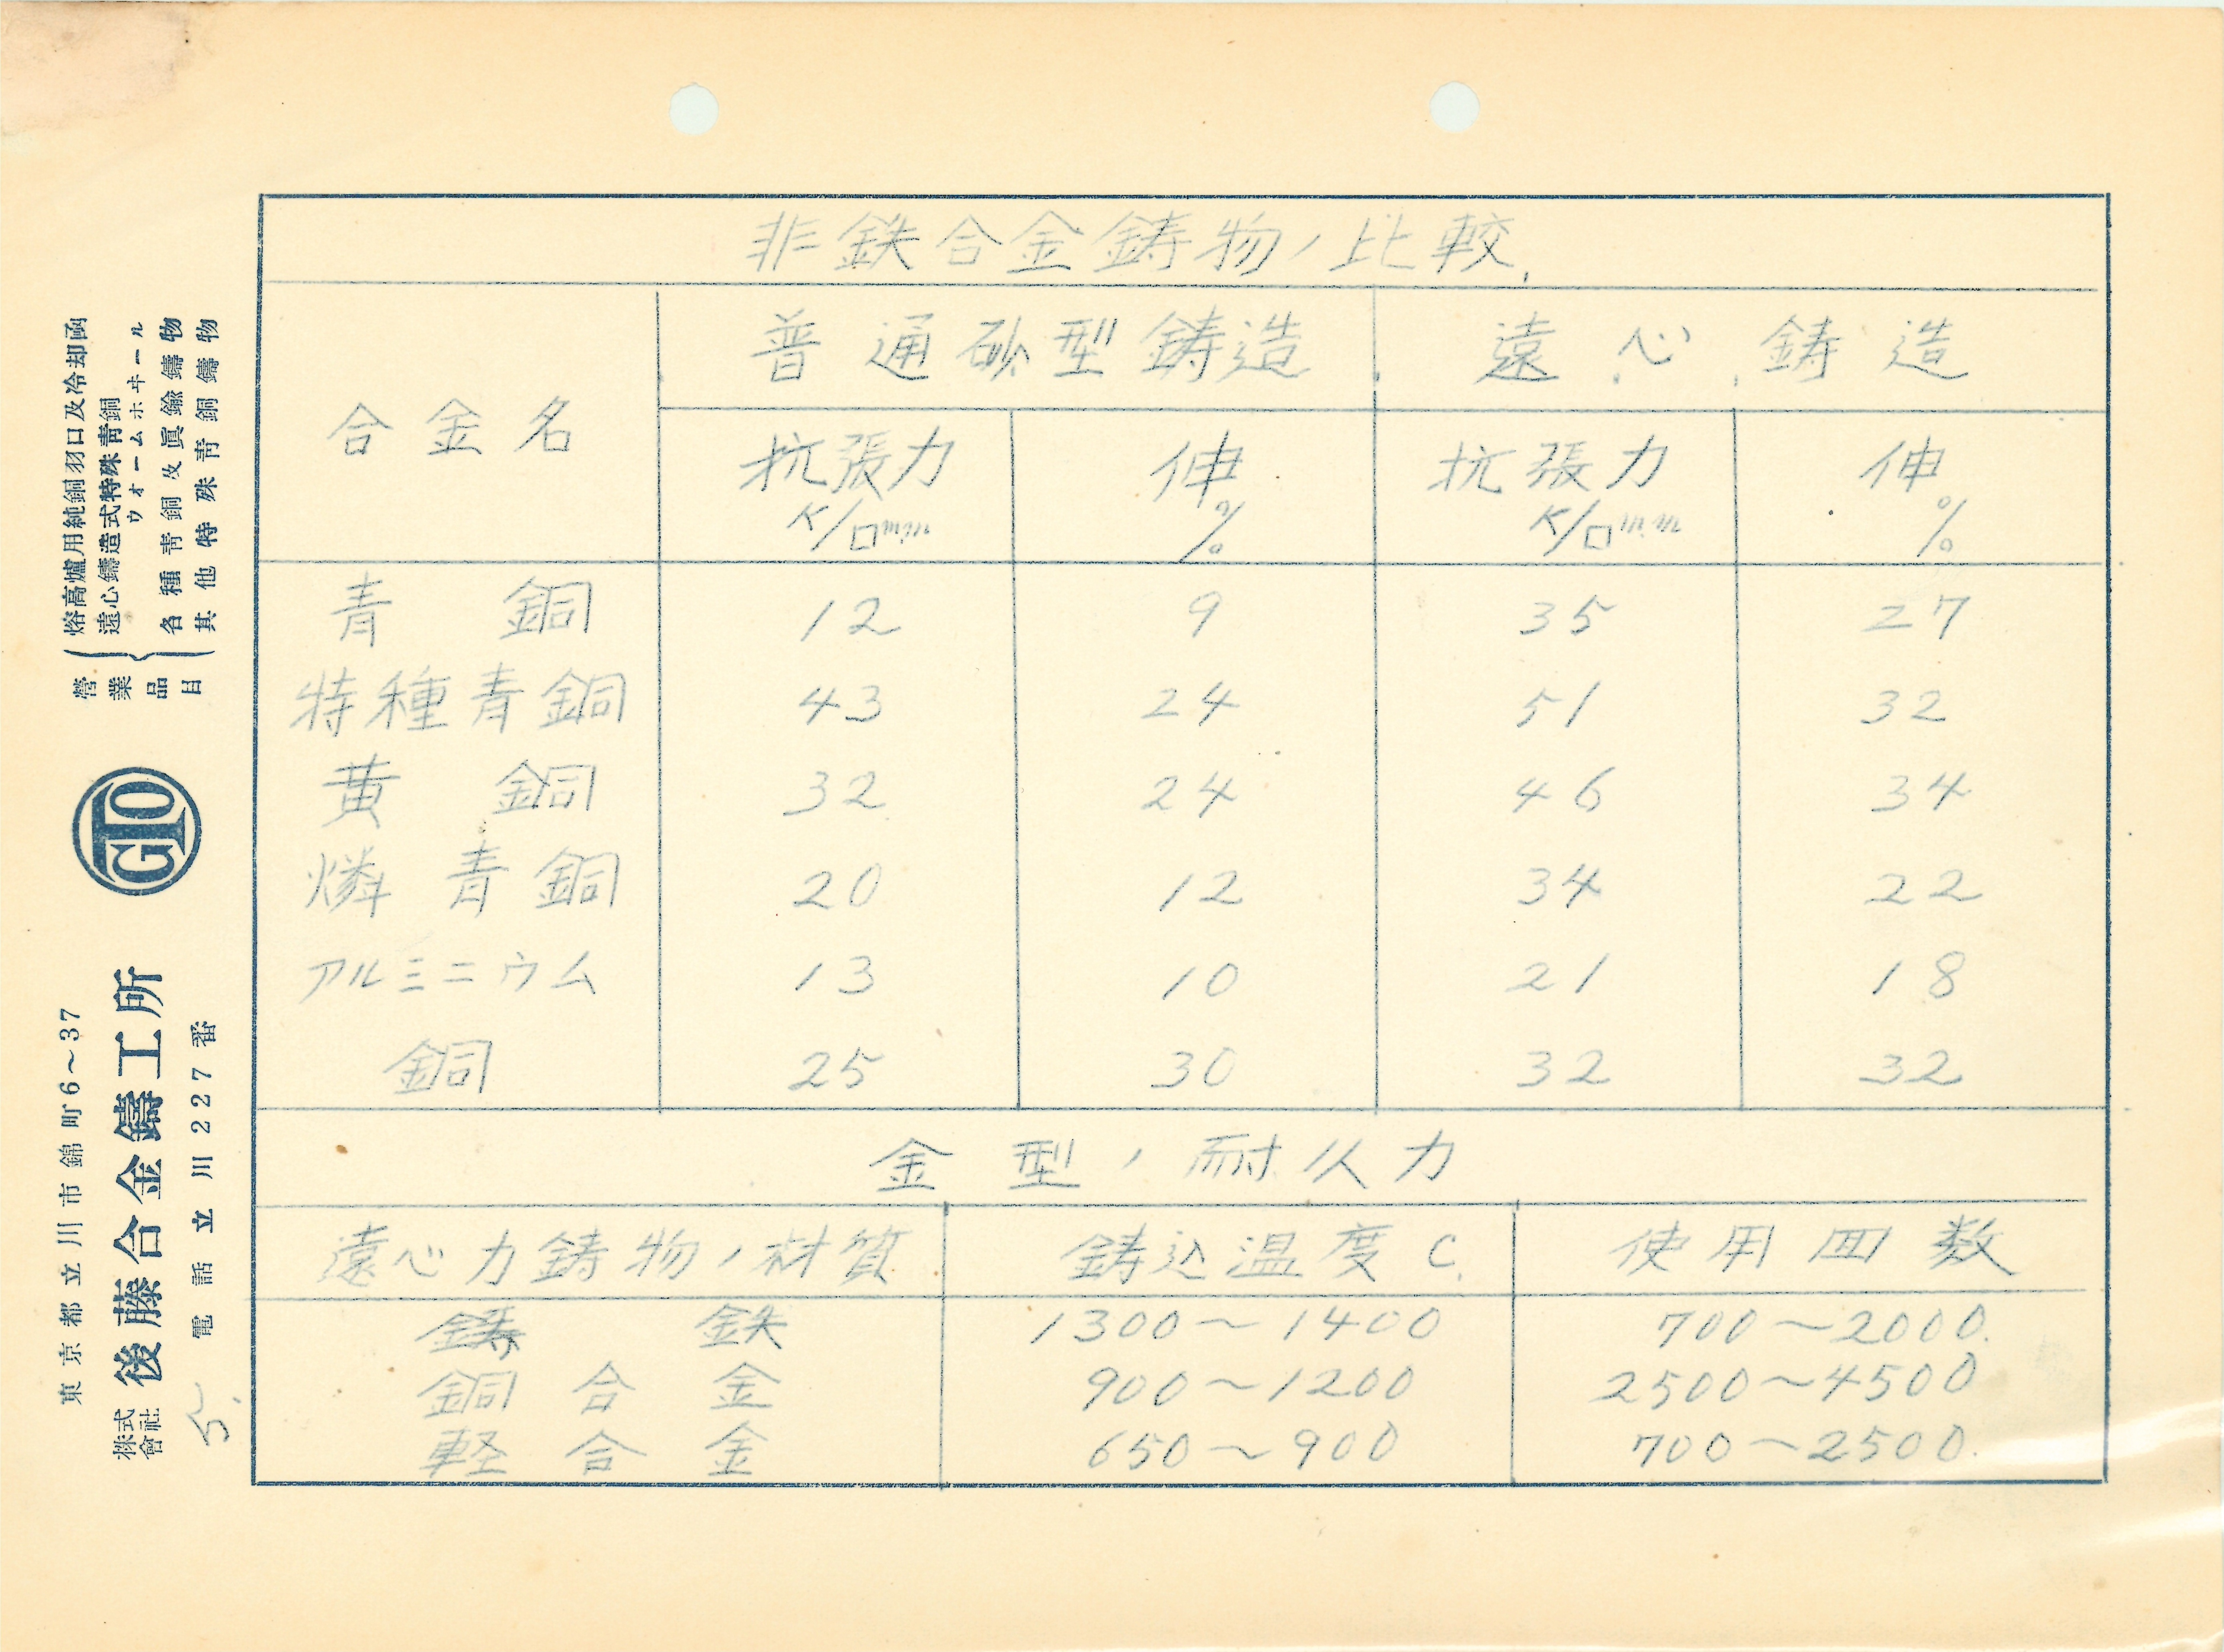 非鉄合金鋳物ノ比較
合金名 普通砂型鋳造 遠心鋳造
抗張力 K/□mm 伸 % 抗張力 K/□mm 伸 %
青銅 12 9 35 27
特種青銅 43 24 51 32
黄銅 32 24 46 34
燐青銅 20 12 34 22
アルミニウム 13 10 21 18
銅 25 30 32 32
金型ノ耐久力
遠心力鋳物ノ材質 鋳込温度C. 使用回数
鋳鉄 1300〜1400 700〜2000.
銅合金 900〜1200 2500〜4500
軽合金 650〜900 700〜2500.
東京都立川市錦町6〜37
株式會社 後藤合金鑄工所
電話立川227番
5.
GTO
營業品目
熔高爐用純銅羽口及冷却函
遠心鑄造式特殊靑銅
ウオームホヰール
各種靑銅及眞鍮鑄物
其他特殊靑銅鑄物